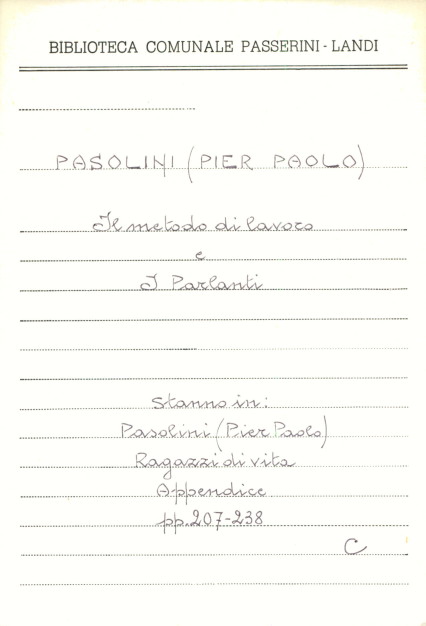 BIBLIOTECA COMUNALE PASSERINI-LANDI
PASOLINI (PIER PAOLO)
Il metodo di lavoro
e
I Parlanti
Stanno in:
Pasolini (Pier Paolo)
Ragazzi di vita
Appendice
pp. 207-238
C